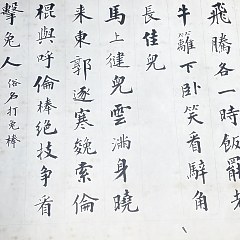 飛騰各一時飯罷老
牛籬下卧笑看角
長佳兒
馬上健兒雲滿身曉
来東郭逐寒索倫
棍與呼倫棒絕技争看
擊兔人 俗名打兔棒